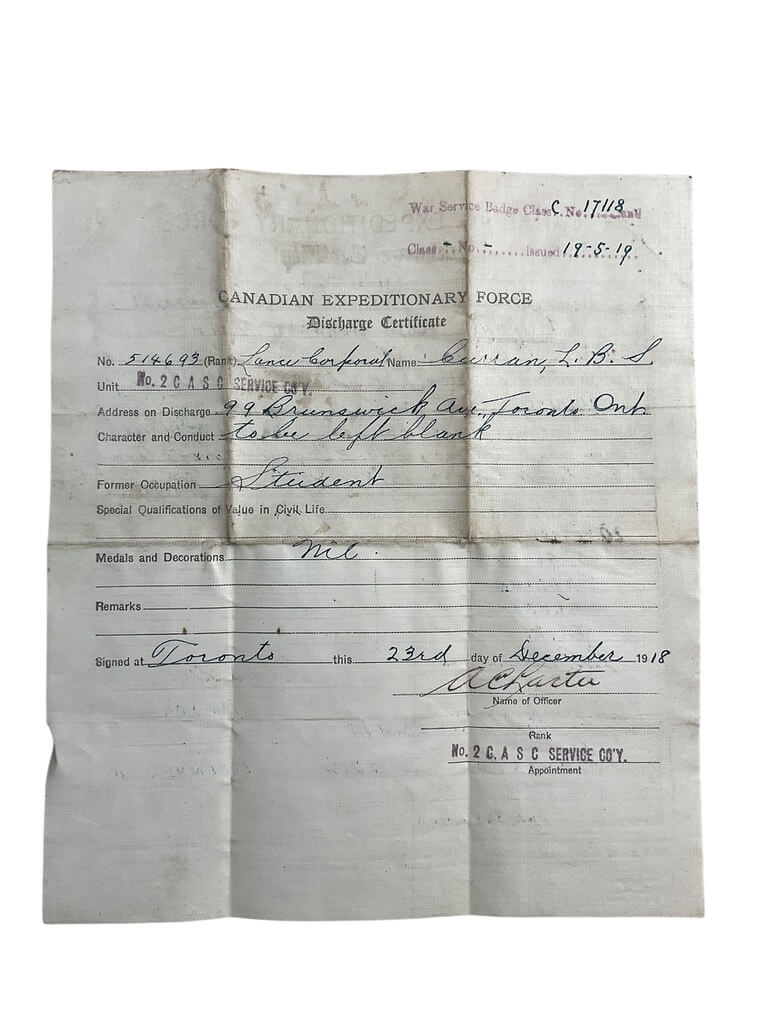 War Service Badge Class C No. 17118 and
Class - No. - issued 19-5-19
CANADIAN EXPEDITIONARY FORCE
Discharge Certificate
No. 514693 (Rank) Lance Corporal Name Curran, L. B. S.
Unit No. 2 C A S C SERVICE CO'Y.
Address on Discharge 99 Brunswick Ave., Toronto Ont.
Character and Conduct to be left blank
Former Occupation Student
Special Qualifications of Value in Civil Life
Medals and Decorations Nil.
Remarks
Signed at Toronto this 23rd day of December 1918
Name of Officer
Rank
No. 2 C. A S C SERVICE CO'Y.
Appointment